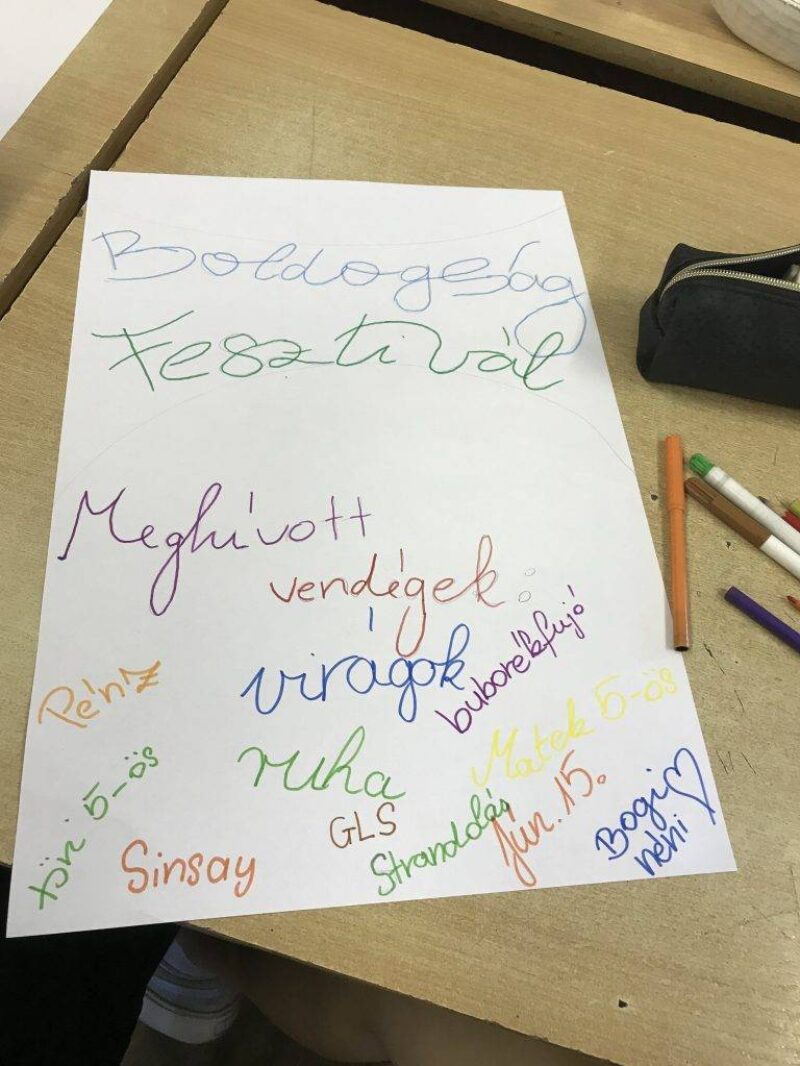 Boldogság
Fesztivál
Meghívott
vendégek:
Pénz
virágok
buborékfújó
töri 5-ös
ruha
Matek 5-ös
Sinsay
GLS
Strandolás
Jún. 15.
Bogi
néni